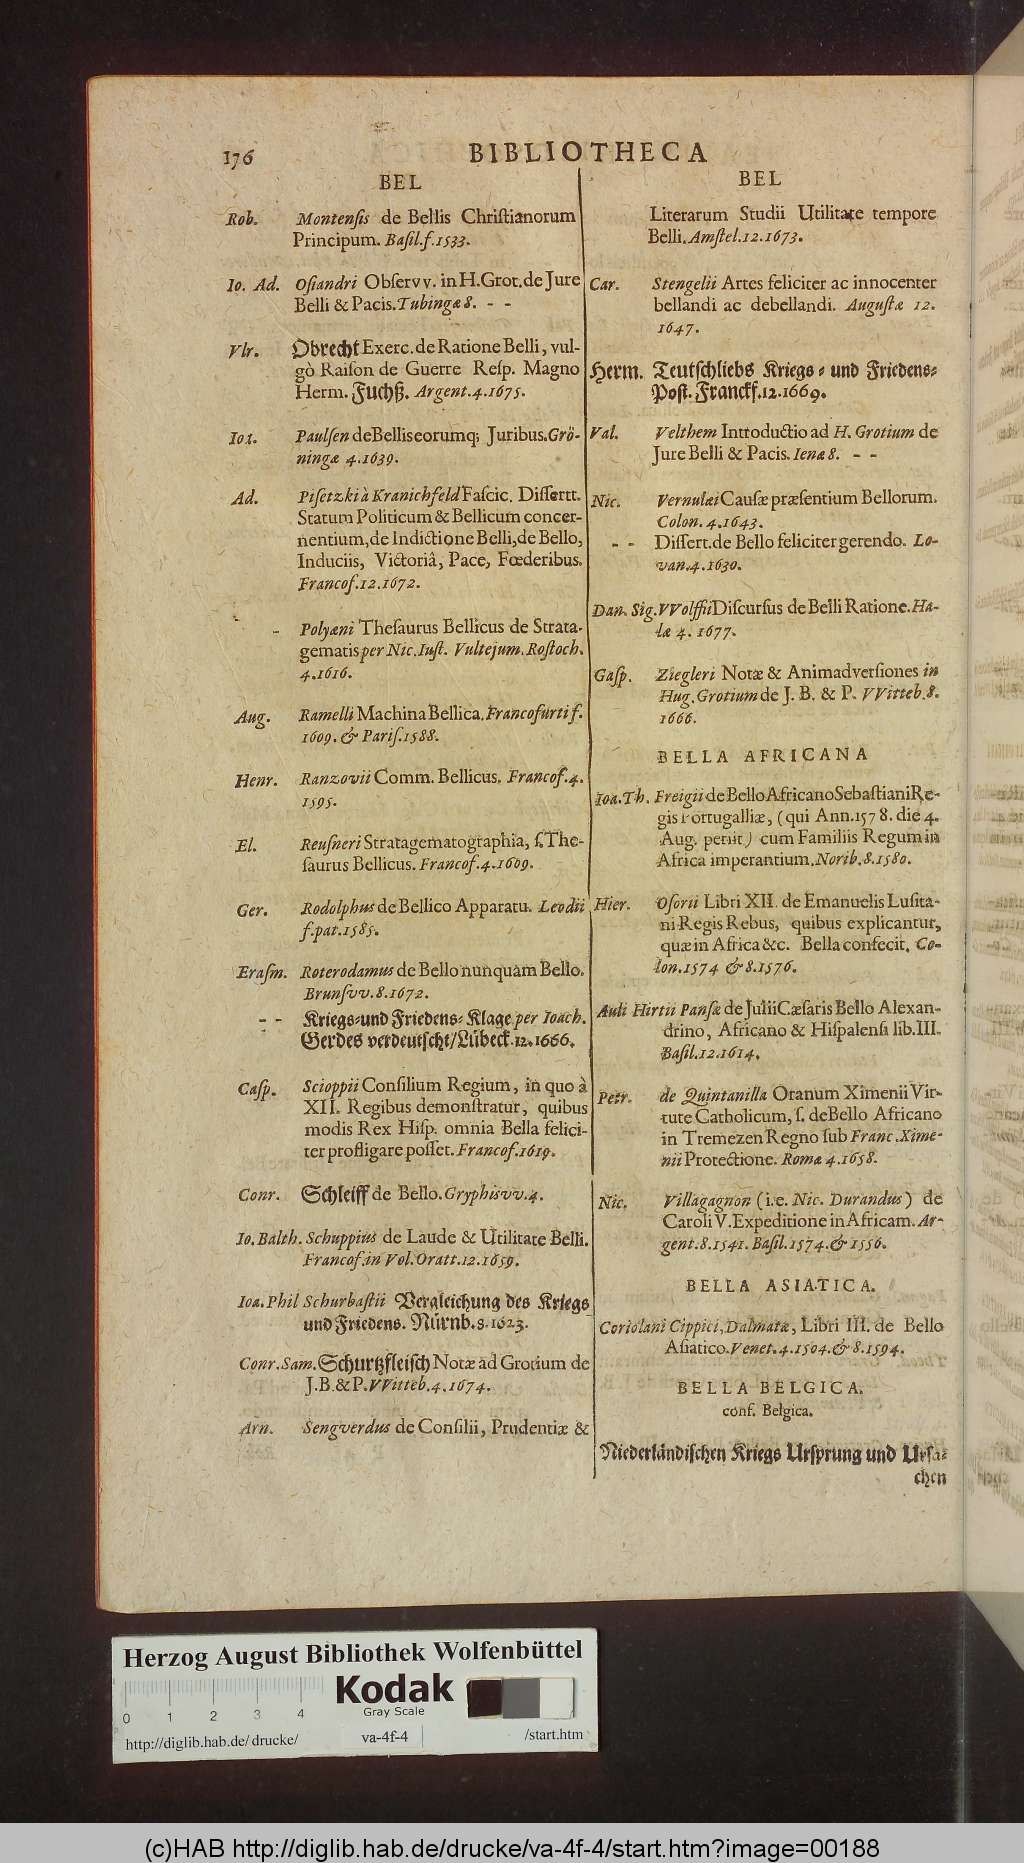 176
BIBLIOTHECA
BEL
Rob. Montensis de Bellis Christianorum
Principum. Basil. f. 1533.
Io. Ad. Osiandri Observv. in H. Grot. de Jure
Belli & Pacis. Tubingæ 8. - -
Vlr. Obrecht Exerc. de Ratione Belli, vul-
gò Raison de Guerre Resp. Magno
Herm. Fuchß. Argent. 4. 1675.
Iot. Paulsen de Bellis eorumq; Juribus. Grö-
ningæ 4. 1639.
Ad. Pisetzki à Kranichfeld Fascic. Dissertt.
Statum Politicum & Bellicum concer-
nentium, de Indictione Belli, de Bello,
Induciis, Victoriâ, Pace, Fœderibus.
Francof. 12. 1672.
- Polyæni Thesaurus Bellicus de Strata-
gematis per Nic. Iust. Vultejum. Rostoch.
4. 1616.
Aug. Ramelli Machina Bellica. Francofurti f.
1609. & Paris. 1588.
Henr. Ranzovii Comm. Bellicus. Francof. 4.
1595.
El. Reusneri Stratagematographia, s. The-
saurus Bellicus. Francof. 4. 1609.
Ger. Rodolphus de Bellico Apparatu. Leodii
f. pat. 1585.
Erasm. Roterodamus de Bello nunquam Bello.
Brunsvv. 8. 1672.
- - Kriegs- und Friedens- Klage per Ioach.
Gerdes verdeutscht/ Lübeck. 12. 1666.
Casp. Scioppii Consilium Regium, in quo à
XII. Regibus demonstratur, quibus
modis Rex Hisp. omnia Bella felici-
ter profligare posset. Francof. 1619.
Conr. Schleiff de Bello. Gryphisvv. 4.
Io. Balth. Schuppius de Laude & Utilitate Belli.
Francof. in Vol. Oratt. 12. 1659.
Ioa. Phil Schurbastii Vergleichung des Kriegs
und Friedens. Nürnb. 8. 1623.
Conr. Sam. Schurtzfleisch Notæ ad Grotium de
J. B. & P. VVitteb. 4. 1674.
Arn. Sengverdus de Consilii, Prudentiæ &
BEL
Literarum Studii Utilitate tempore
Belli. Amstel. 12. 1673.
Car. Stengelii Artes feliciter ac innocenter
bellandi ac debellandi. Augustæ 12.
1647.
Herm. Teutschliebs Kriegs- und Friedens-
Post. Franckf. 12. 1669.
Val. Velthem Introductio ad H. Grotium de
Jure Belli & Pacis. Ienæ 8. - -
Nic. Vernulæi Causæ præsentium Bellorum.
Colon. 4. 1643.
- - Dissert. de Bello feliciter gerendo. Lo-
van. 4. 1630.
Dan. Sig. VVolffii Discursus de Belli Ratione. Ha-
læ 4. 1677.
Gasp. Ziegleri Notæ & Animadversiones in
Hug. Grotium de J. B. & P. VVitteb. 8.
1666.
BELLA AFRICANA
Ioa. Th. Freigii de Bello Africano Sebastiani Re-
gis Portugalliæ, (qui Ann. 1578. die 4.
Aug. periit) cum Familiis Regum in
Africa imperantium. Norib. 8. 1580.
Hier. Osorii Libri XII. de Emanuelis Lusita-
ni Regis Rebus, quibus explicantur,
quæ in Africa &c. Bella confecit. Co-
lon. 1574 & 8. 1576.
Auli Hirtii Pansæ de Julii Cæsaris Bello Alexan-
drino, Africano & Hispalensi lib. III.
Basil. 12. 1614.
Petr. de Quintanilla Oranum Ximenii Vir-
tute Catholicum, s. de Bello Africano
in Tremezen Regno sub Franc. Xime-
nii Protectione. Romæ 4. 1658.
Nic. Villagagnon (i.e. Nic. Durandus) de
Caroli V. Expeditione in Africam. Ar-
gent. 8. 1541. Basil. 1574. & 1556.
BELLA ASIATICA.
Coriolani Cippici, Dalmatæ, Libri III. de Bello
Asiatico. Venet. 4. 1504. & 8. 1594.
BELLA BELGICA.
conf. Belgica.
Niederländischen Kriegs Ursprung und Ursa-
chen
Herzog August Bibliothek Wolfenbüttel
Kodak
Gray Scale
0 1 2 3 4
http://diglib.hab.de/drucke/ va-4f-4 /start.htm
(c)HAB http://diglib.hab.de/drucke/va-4f-4/start.htm?image=00188